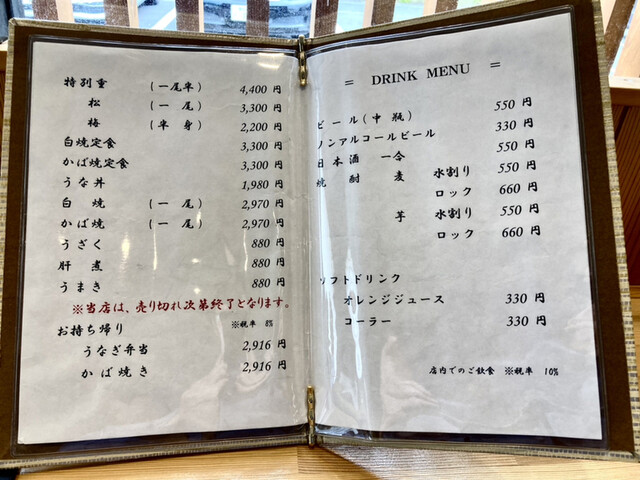 特別重 (一尾半) 4,400 円
松 (一尾) 3,300 円
梅 (半身) 2,200 円
白焼定食 3,300 円
かば焼定食 3,300 円
うな丼 1,980 円
白焼 (一尾) 2,970 円
かば焼 (一尾) 2,970 円
うざく 880 円
肝煮 880 円
うまき 880 円
※当店は、売り切れ次第終了となります。
お持ち帰り ※税率 8%
うなぎ弁当 2,916 円
かば焼き 2,916 円
= DRINK MENU =
ビール(中瓶) 550 円
ノンアルコールビール 330 円
日本酒 一合 550 円
焼酎 麦 水割り 550 円
ロック 660 円
芋 水割り 550 円
ロック 660 円
ソフトドリンク
オレンジジュース 330 円
コーラー 330 円
店内でのご飲食 ※税率 10%